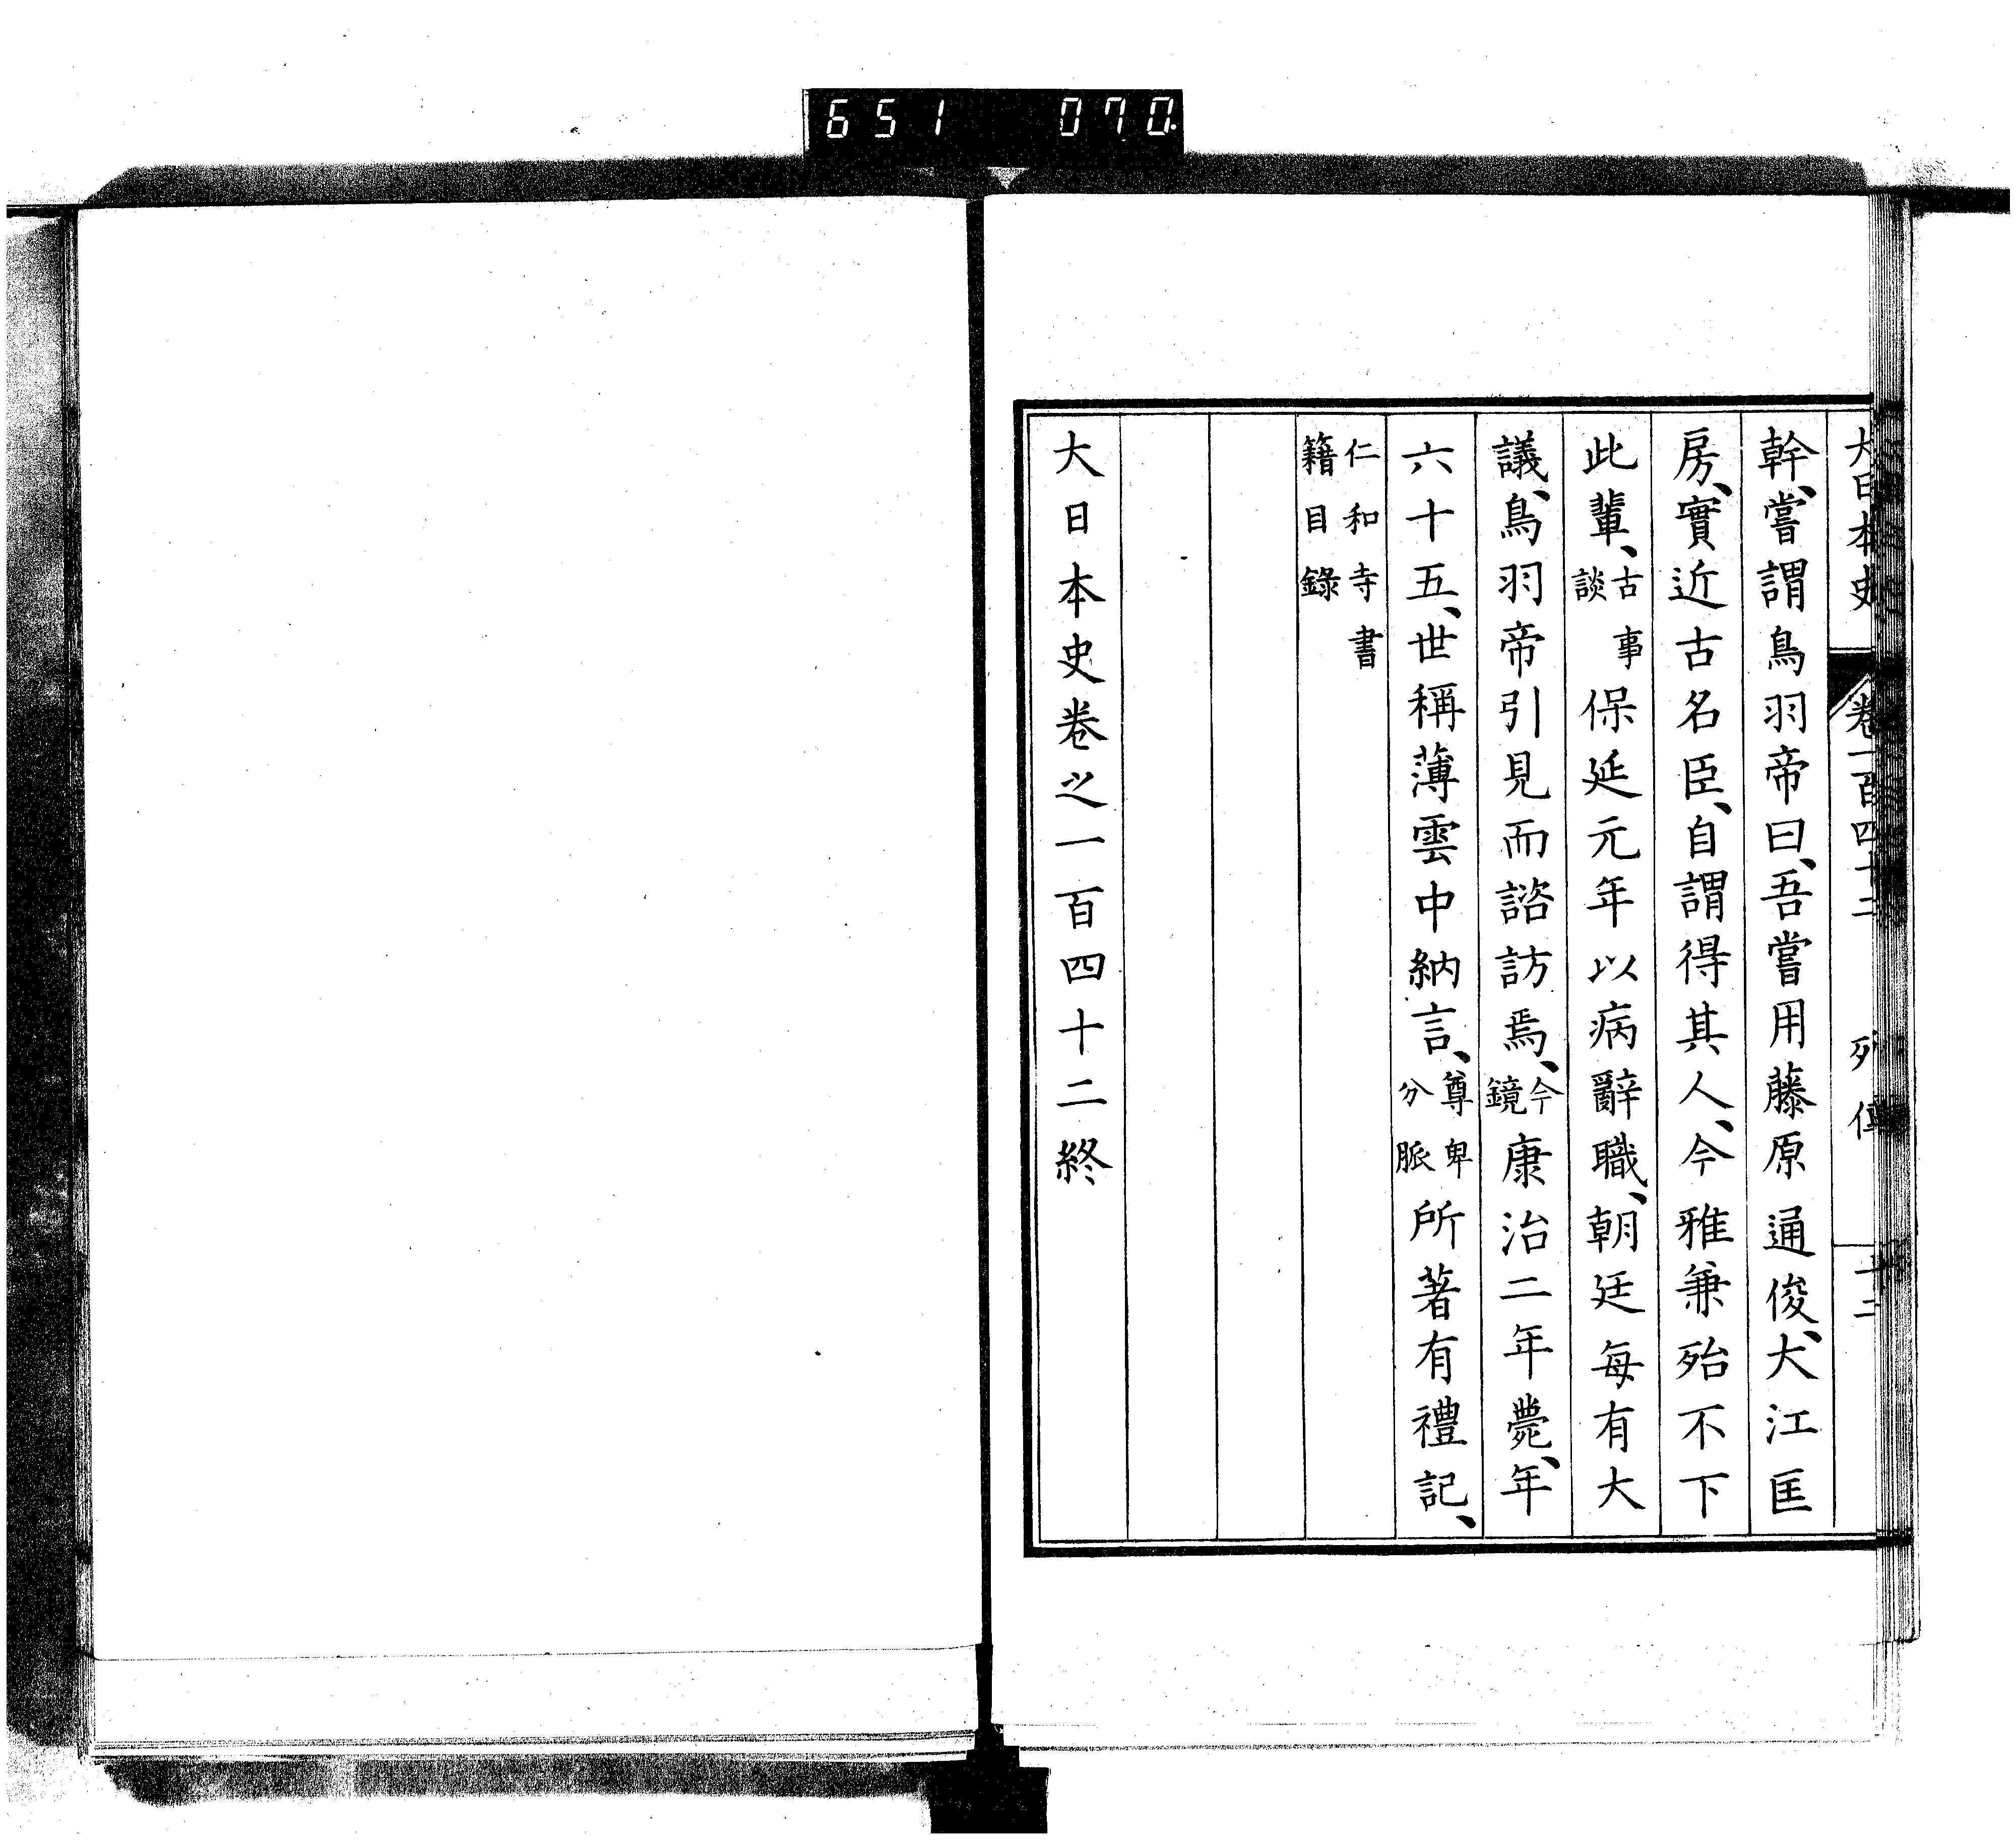 651 070
大日本史 卷一百四十二 列傳 十二
幹、嘗謂鳥羽帝曰、吾嘗用藤原通俊、大江匡
房、實近古名臣、自謂得其人、今雅兼殆不下
此輩、古事談保延元年以病辭職、朝廷每有大
議、鳥羽帝引見而諮訪焉、今鏡康治二年薨、年
六十五、世稱薄雲中納言、尊卑分脈所著有禮記、
仁和寺書籍目錄
大日本史卷之一百四十二終